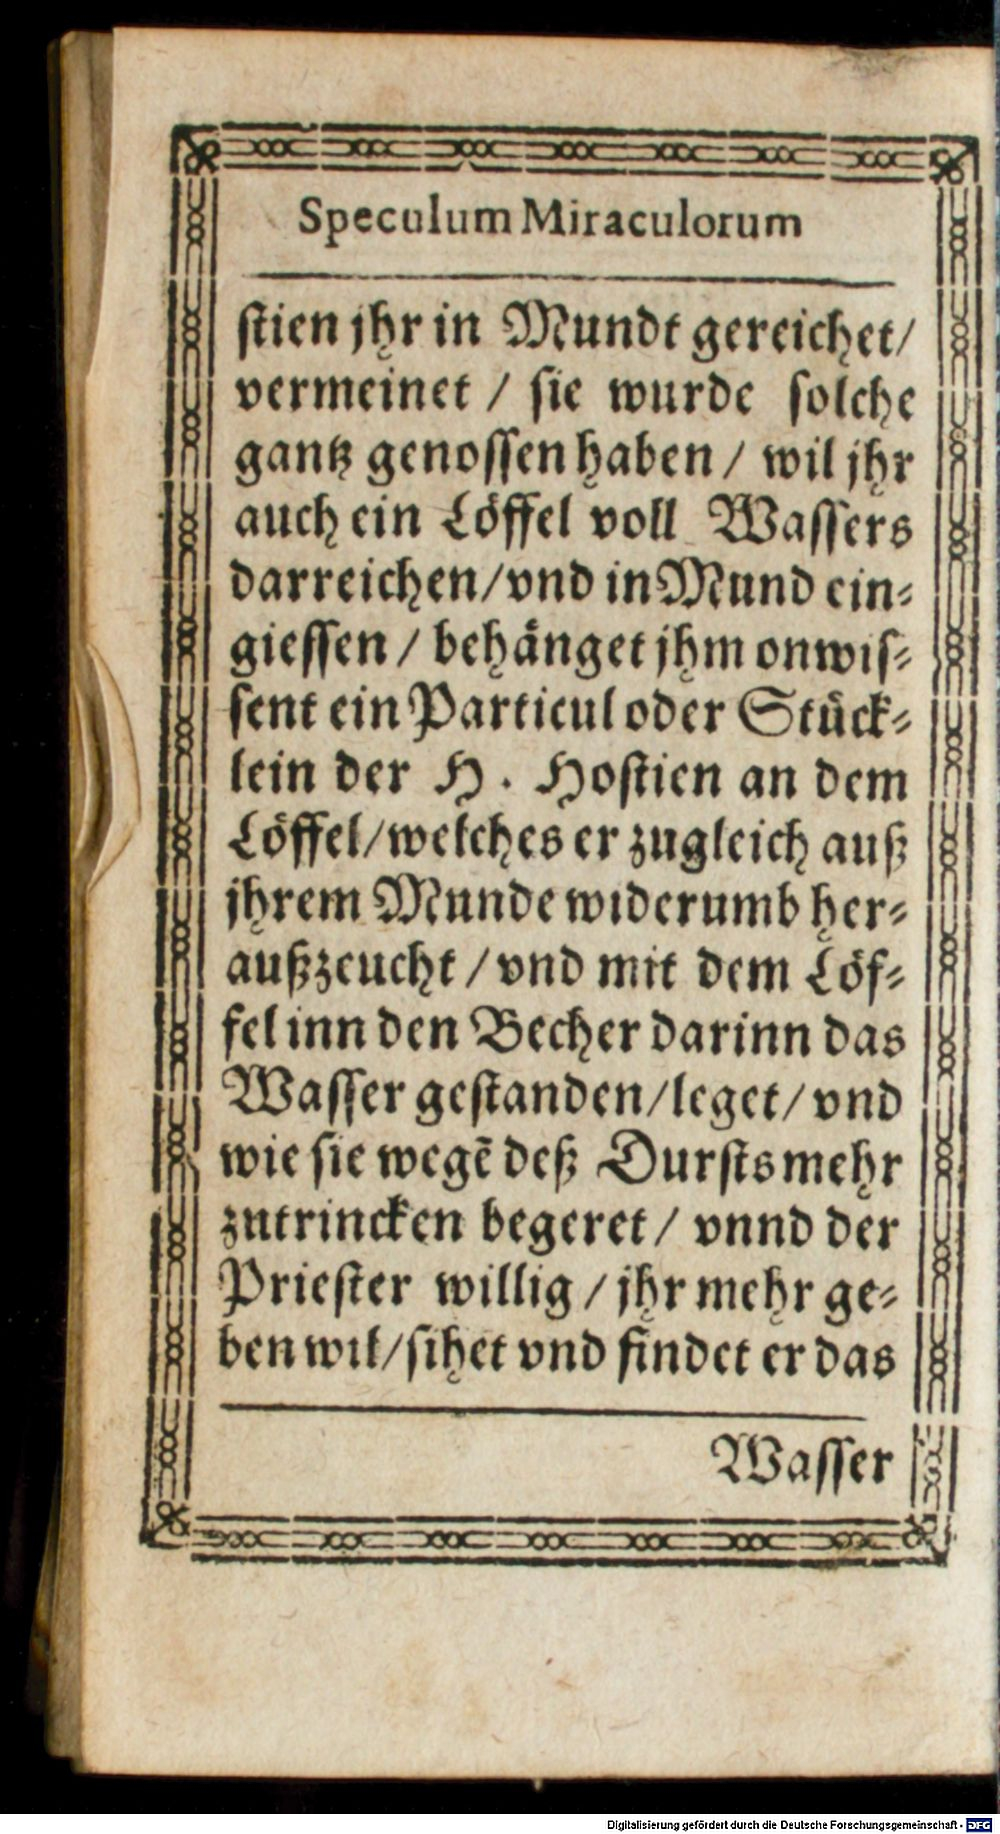 Speculum Miraculorum
ſtien jhr in Mundt gereichet/
vermeinet / ſie wurde ſolche
gantz genoſſen haben / wil jhr
auch ein Löffel voll Waſſers
darreichen/vnd in Mund ein⸗
gieſſen / behänget jhm onwiſ⸗
ſent ein Particul oder Stück⸗
lein der H. Hoſtien an dem
Löffel/welches er zugleich auß
jhrem Munde widerumb her⸗
außzeucht / vnd mit dem Löf⸗
fel inn den Becher darinn das
Waſſer geſtanden/leget/ vnd
wie ſie wegē deß Durſts mehr
zutrincken begeret/ vnnd der
Prieſter willig / jhr mehr ge⸗
ben wil/ſihet vnd findet er das
Waſſer
Digitalisierung gefördert durch die Deutsche Forschungsgemeinschaft - DFG